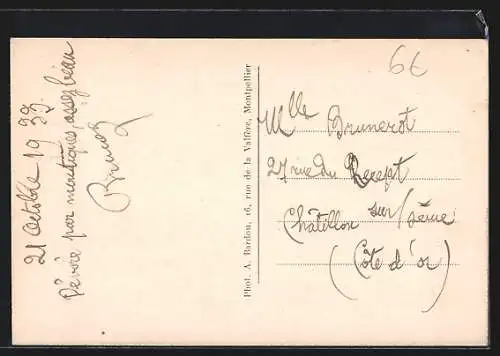 21 Octobre 1933.
Dévoré par moustiques, assez beau
Phot. A. Bardou, 16, rue de la Valfère, Montpellier
6€
Mlle Brunerot
27 rue du Recept
Châtillon sur/Seine
(Côte d'or)